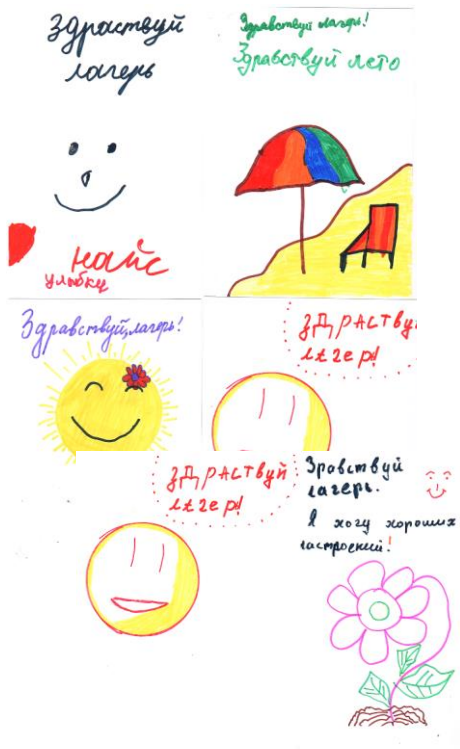 здраствуй
лагерь
найс
улыбку
Здравствуй лагерь!
Здравствуй лето
Здравствуй,лагерь!
здраствуй
лагер!
здраствуй
лагер!
Зравствуй
лагерь.
Я хочу хороших
настроений!